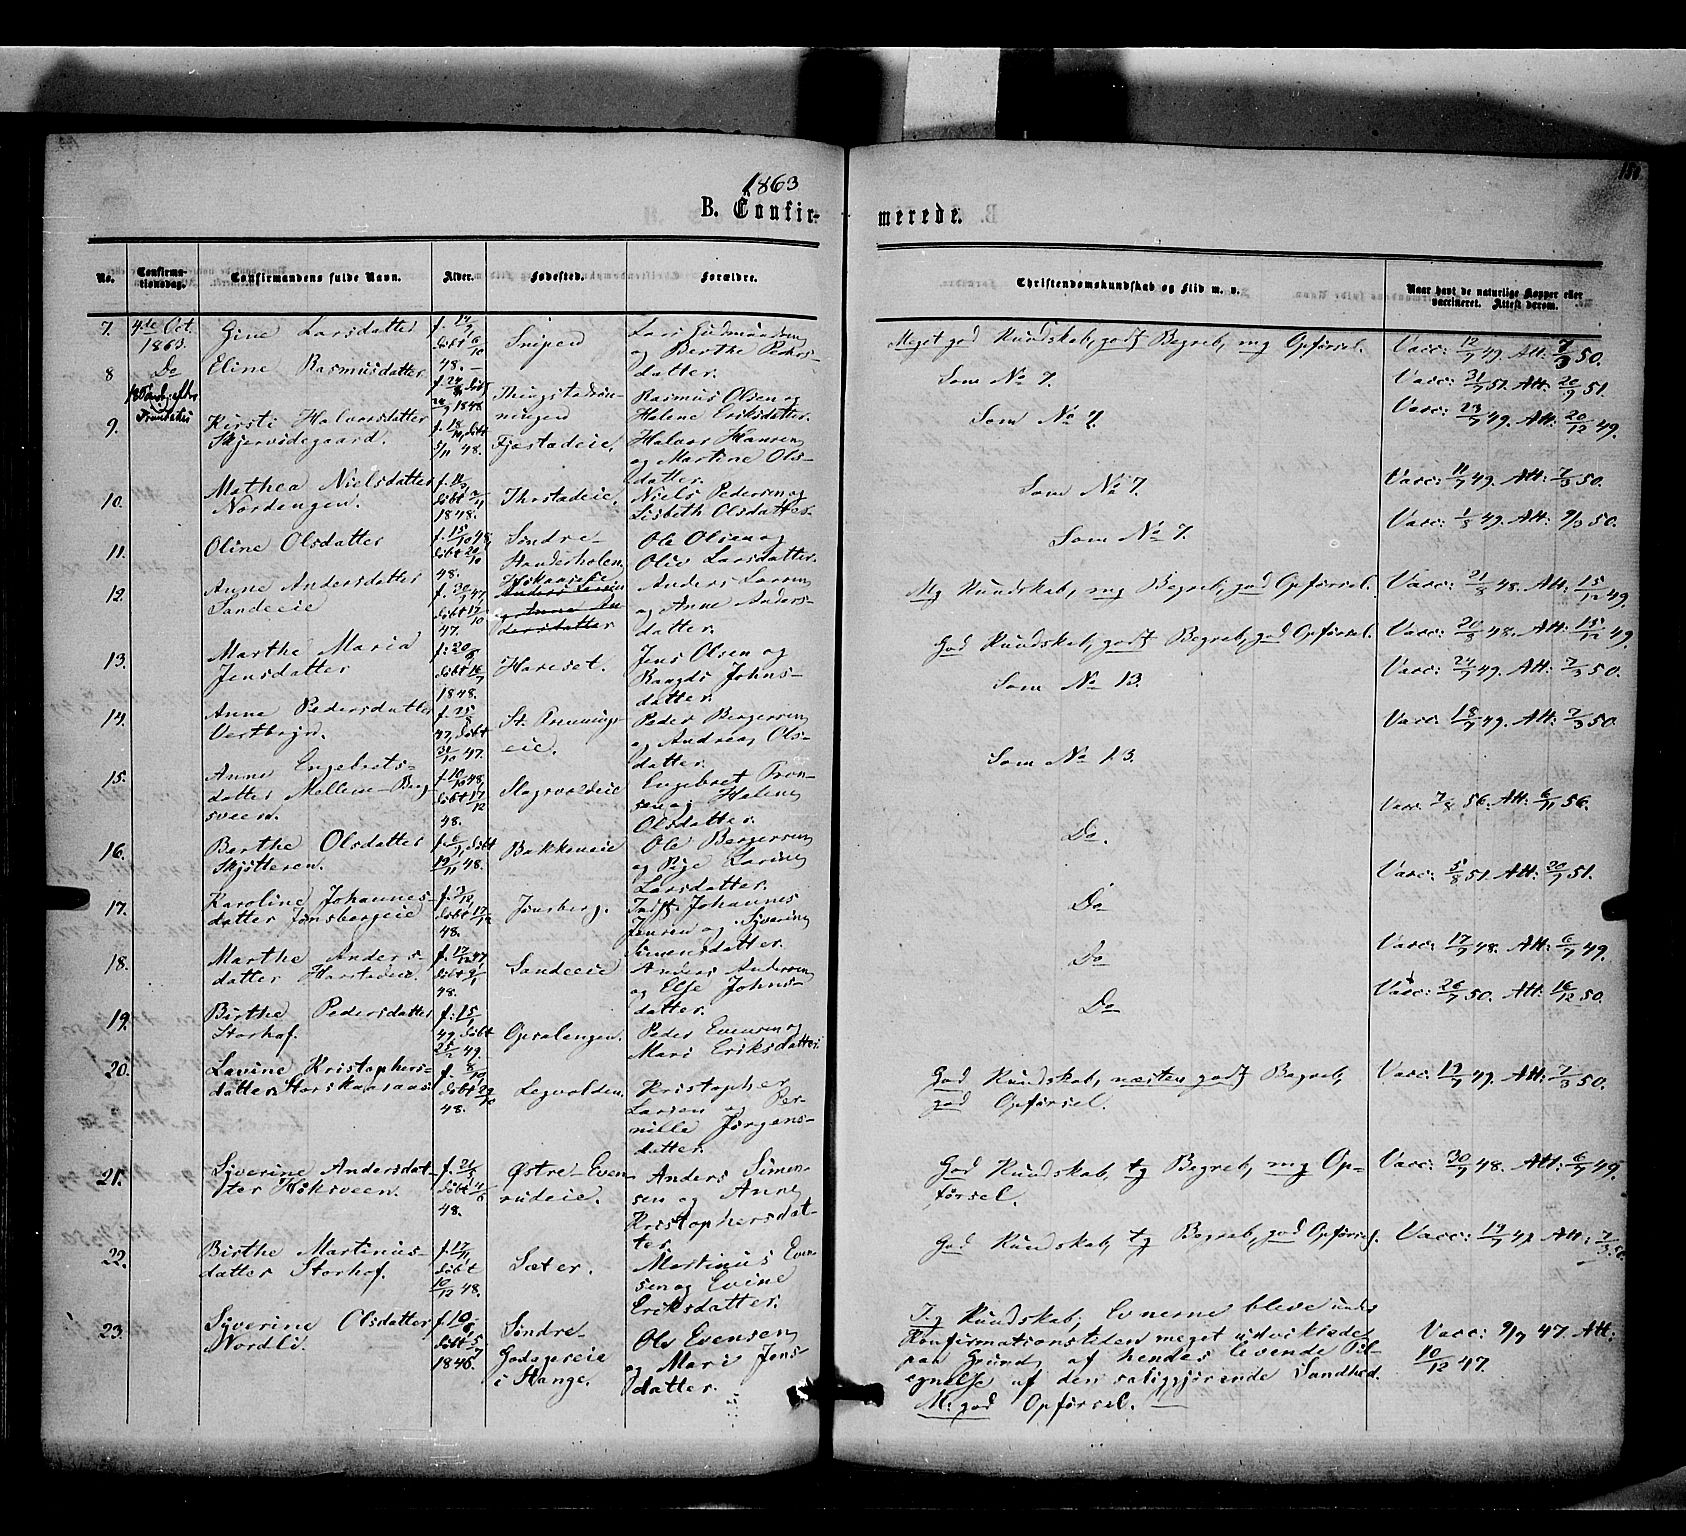 1863
B. Confir-
merede.
No.
Confirma-
tionsdag.
Confirmandens fulde Navn.
Alder.
Fødested.
Forældre.
Christendomskundskab og Flid m. v.
Naar havt de naturlige Kopper eller
vaccineret. Attest derom.
7.
4de Oct.
1863.
Gine Larsdatter
f. 14/9
døbt 8/10
48.
Lars Gudmundsen
og Berthe Peders-
datter.
Meget god Kundskab, godt Begreb, mg Opførsel.
Vacc: 12/7 49. Att: 7/3 50.
8
Do
18 Søndag efter
Trinitatis
Eline Rasmusdatter
1848
Rasmus Olsen og
Helene Eriksdatter.
Som No 7.
Vacc: 31/7 51. Att: 20/9 51.
9.
Kirsti Halvorsdatter
Skjervidegaard.
48.
Fjæstadeie.
Halvor Hansen
og Martine Ols-
datter.
Som No 7.
Vacc: 23/7 49. Att: 20/12 49.
10.
Mathea Nielsdatter
Nordengen.
1848.
Niels Pedersen og
Lisbeth Olsdatter
Som No 7.
Vacc: 11/7 49. Att: 7/3 50.
11.
Oline Olsdatter
f. 15/10 48,
døbt 20/10
48.
Søndre
Ole Olsen og
Olie Larsdatter.
Som No 7.
Vacc: 1/8 49. Att: 9/3 50.
12.
Anne Andersdatter
Sandeeie
f. 30/9 47,
døbt 17/10
47.
Anders Larsen
og Anne An
dersdatter
Anders Larsen
og Anne Anders-
datter.
Mg Kundskab, mg Begreb, god Opførsel.
Vacc: 21/8 48. Att: 15/12 49.
13.
Marthe Maria
Jensdatter
1848.
Hareset.
Jens Olsen og
Ragdi Johns-
datter.
God Kundskab, godt Begreb, god Opførsel.
Vacc: 20/9 48. Att: 15/12 49.
14.
Anne Pedersdatter
47, døbt
31/10 47.
eie.
Peder Bergersen
og Andrea Ols-
datter.
Som No 13.
Vacc: 24/7 49. Att: 7/3 50.
15.
Anne Engebrets-
datter Mellem-Berg-
sveen.
f. 10/10 48,
døbt 17/12
48.
Engebret Fron-
sen og Helene
Olsdatter.
Som No 13.
Vacc: 18/7 49. Att: 7/3 50.
16.
Berthe Olsdatter
Skjötteren.
19/11 48.
Bakkeneie
Ole Bergersen
og Larine
Larsdatter.
Do.
Vacc: 7/8 56. Att: 6/11 56.
17.
Karoline Johannes-
datter Jønsbergeie
48.
Jønsberg.
Indst. Johannes
Jensen og Syverine
Simensdatter.
Do
Vacc: 5/8 51. Att: 20/7 51.
18.
Marthe Anders-
datter Harstadeie
f. 17/12 47
døbt 9/1
48.
Sandeeie
Anders Andersen
og Else Johns-
datter.
Do
Vacc: 17/7 48. Att: 6/7 49.
19.
Birthe Pedersdatter
Storhof.
f: 15/1
49, døbt
25/2 49.
Opsalengen.
Peder Evensen og
Mari Eriksdatter.
Do
Vacc: 26/7 50. Att: 16/12 50.
20.
Lavine Kristophers-
datter Storskaaraas
f. 8/10,
døbt 29/10
48.
Legvolden.
Kristopher
Larsen og Per-
nille Jørgens-
datter.
God Kundskab, næsten godt Begreb,
god Opførsel.
Vacc: 19/7 49. Att: 7/3 50.
21.
Syverine Andersdat-
ter Höksveen.
48.
Østre-Even-
rudeie.
Anders Simen-
sen og Anne
Kristophersdat-
ter.
God Kundskab, tg Begreb, mg Op-
førsel.
Vacc: 30/7 48. Att: 6/7 49.
22.
Birthe Martinus-
datter Storhof.
f. 17/11,
døbt
10/12 48.
Sæter.
Martinus Even-
sen og Evine
Eriksdatter.
God Kundskab, tg Begreb, god Opførsel.
Vacc: 19/7 49 Att: 7/3 50
23.
Syverine Olsdatter
Nordli.
f. 10/6
døbt 5/7
1846.
Søndre-
i Stange.
Ole Evensen
og Mari Jens-
datter.
Tg Kundskab, Evnerne bleve under
Konfirmationstiden meget udviklede
paa Grund af hendes levende Til-
egnelse af den saliggjørende Sandhed.
M: god Opførsel.
Vacc: 9/7 47. Att:
10/12 47.